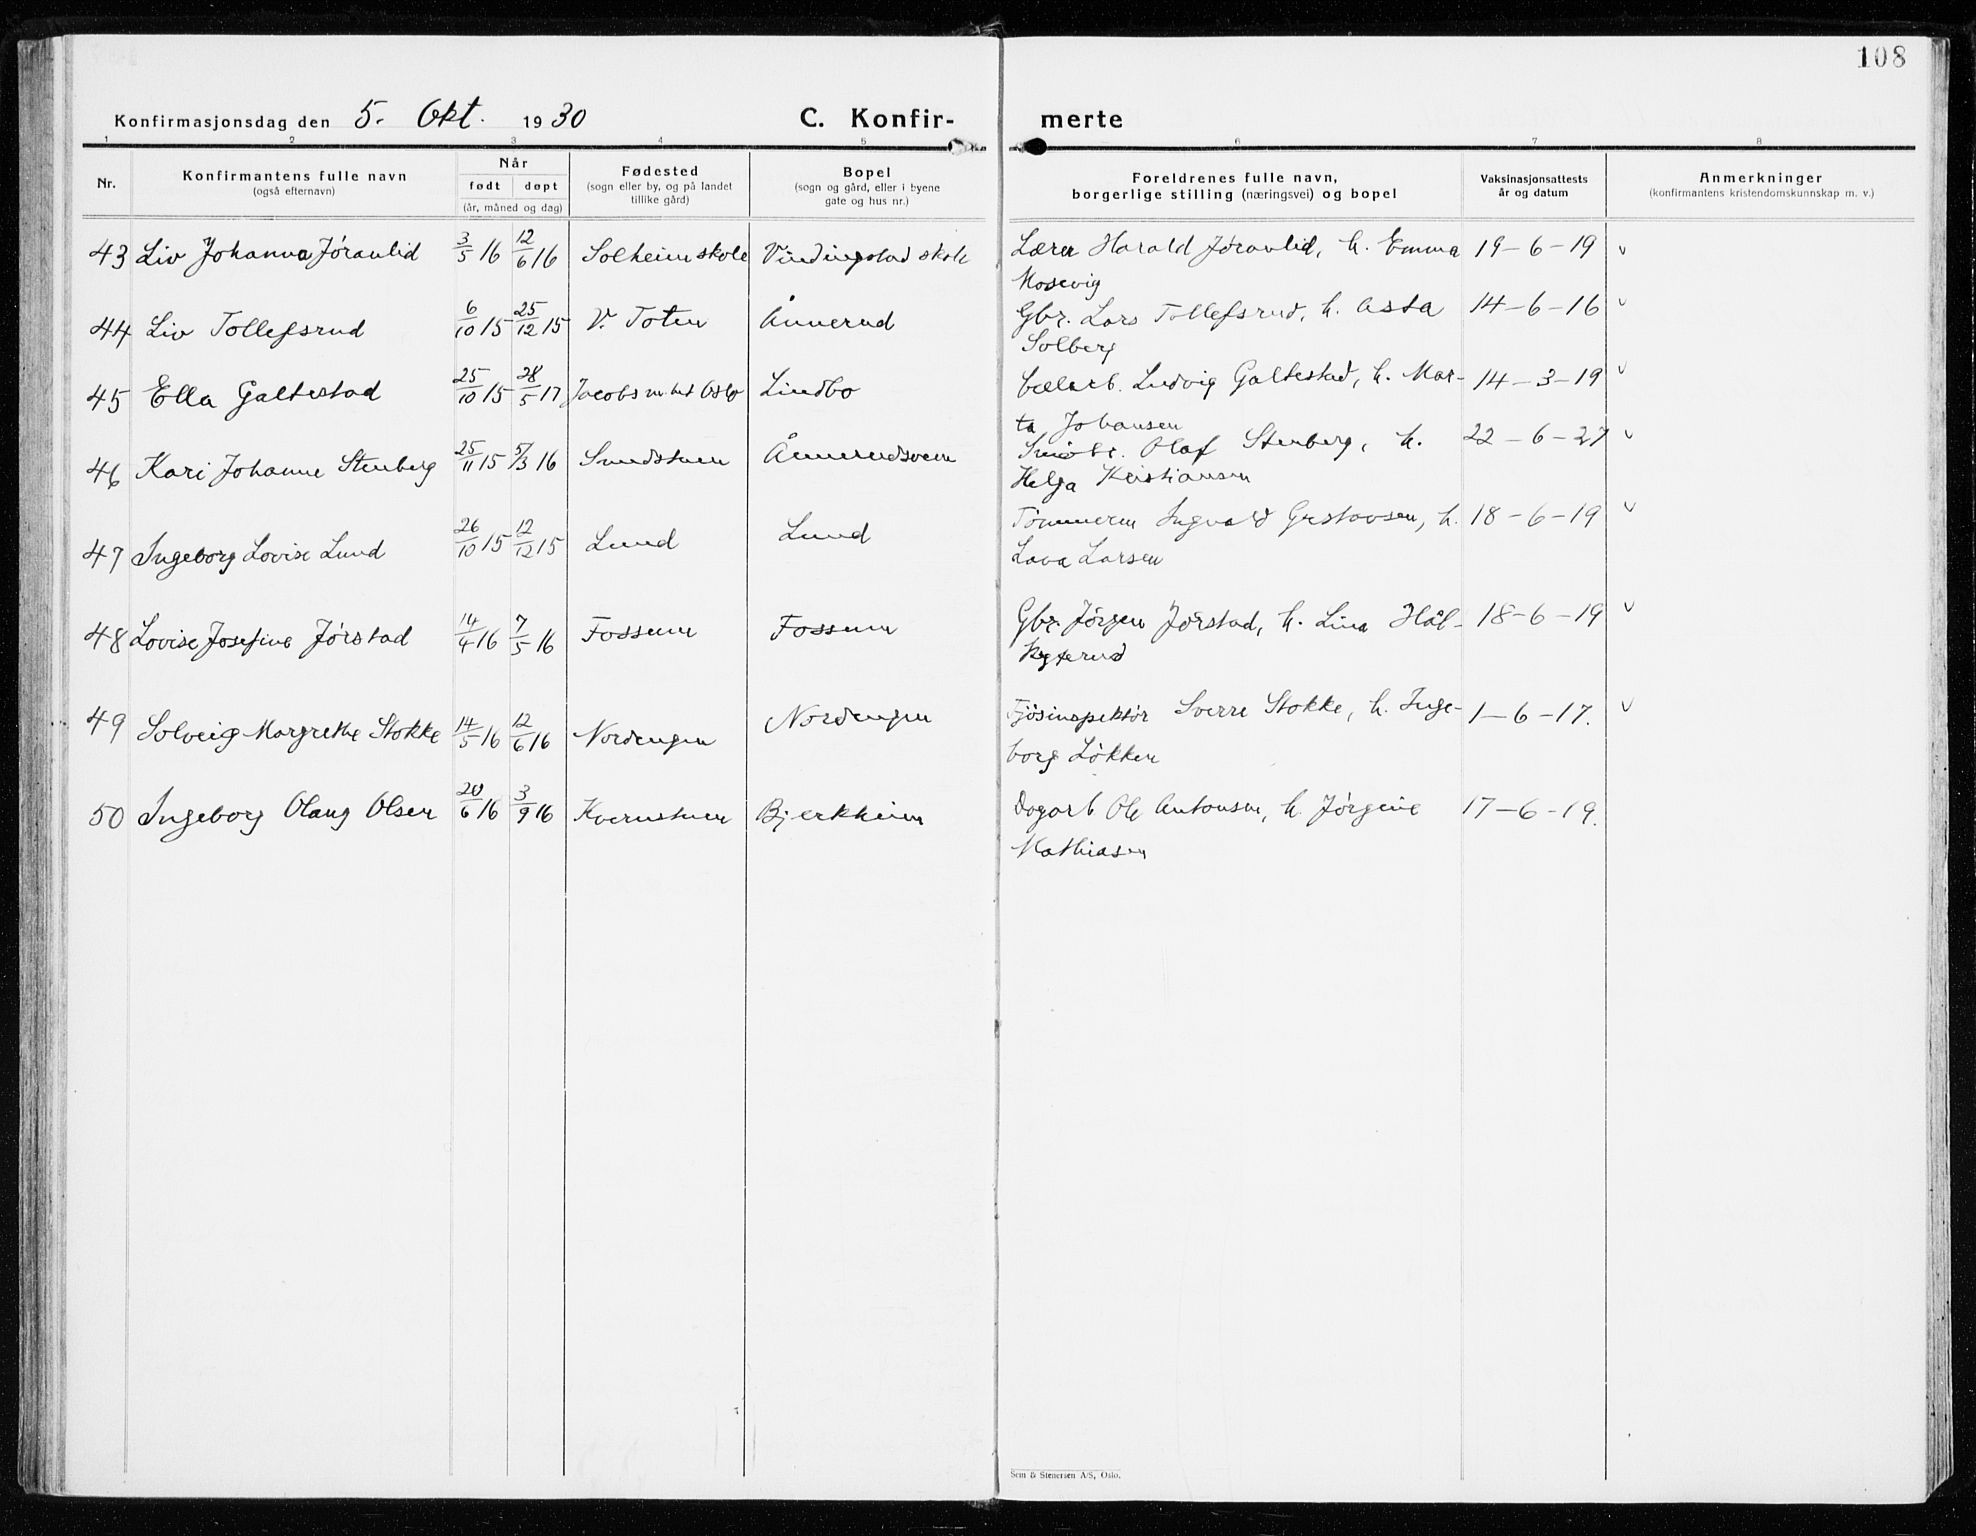 108
Konfirmasjonsdag den 5. Okt. 1930 C. Konfir- merte
1 2 3 4 5 6 7 8
Nr. Konfirmantens fulle navn (også efternavn) Når født døpt (år, måned og dag) Fødested (sogn eller by, og på landet tillike gård) Bopel (sogn og gård, eller i byene gate og hus nr.) Foreldrenes fulle navn, borgerlige stilling (næringsvei) og bopel Vaksinasjonsattests år og datum Anmerkninger (konfirmantens kristendomskunnskap m. v.)
43 Liv Johanna Jøranlid 3/5 16 12/6 16 Solheim skole Vindingstad skole Lærer Harald Jøranlid, h. Emma 19-6-19 v
Mosevig
44 Liv Tollefsrud 6/10 15 25/12 15 V. Toten Ånnerud Gbr. Lars Tollefsrud, h. Asta 14-6-16 v
Solberg
45 Ella Galtestad 25/10 15 28/5 17 Jacobs m.het Oslo Lindbo Ludvig Galtestad, h. Mar- 14-3-19 v
ta Johansen
46 Kari Johanne Stenberg 25/11 15 5/3 16 Sundstuen Ånnerudsveen Småbr. Olaf Stenberg, h. 22-6-27 v
Helga Kristiansen
47 Ingeborg Lovise Lund 26/10 15 12/12 15 Lund Lund Tømmerm Ingvald Gustavsen, h. 18-6-19 v
Lava Larsen
48 Lovise Josefine Jørstad 14/4 16 7/5 16 Fossum Fossum Gbr. Jørgen Jørstad, h. Lina Hål- 18-6-19 v
49 Solveig Margrethe Stokke 14/5 16 12/6 16 Nordengen Nordengen Fjøsinspektør Sverre Stokke, h. Inge- 1-6-17. v
borg Løkken
50 Ingeborg Olaug Olsen 20/6 16 3/9 16 Kvernstuen Bjerkheim Dagarb Ole Antonsen, h. Jørgine 17-6-19.
Mathiasen
Sem & Stenersen A/S, Oslo.